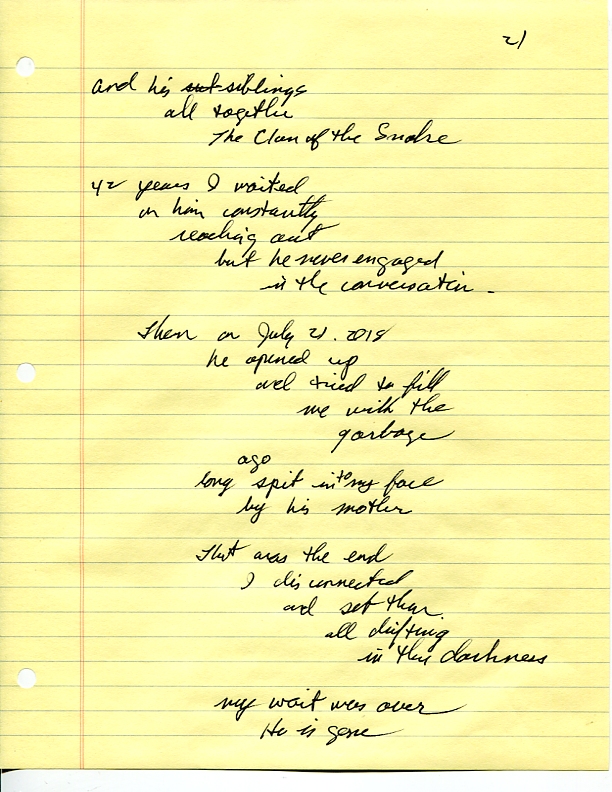 21
and his sut siblings
all together
The Clan of the Snake
42 years I waited
on him constantly
reaching out
but he never engaged
in the conversation -
Then on July 21. 2018
he opened up
and tried to fill
me with the
garbage
ago
long spit into my face
by his mother
That was the end
I disconnected
and set them
all drifting
in the darkness
my wait was over
He is gone